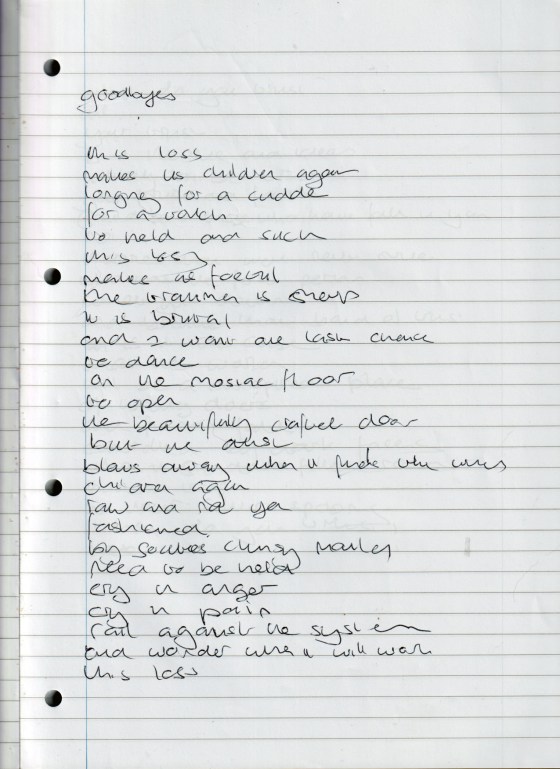 goodbyes
this loss
makes us children again
longing for a cuddle
for a touch
to held and such
this loss
makes us foetal
the trauma is
it is brutal
and I want one last chance
to dance
on the mosiac floor
to open
the beautifully crafted door
but the dust
blows away when it
children again
raw and not yet
fashioned.
by clumsy
need to be held
cry in anger
cry in pain
rail against the system
and wonder when it will
this loss